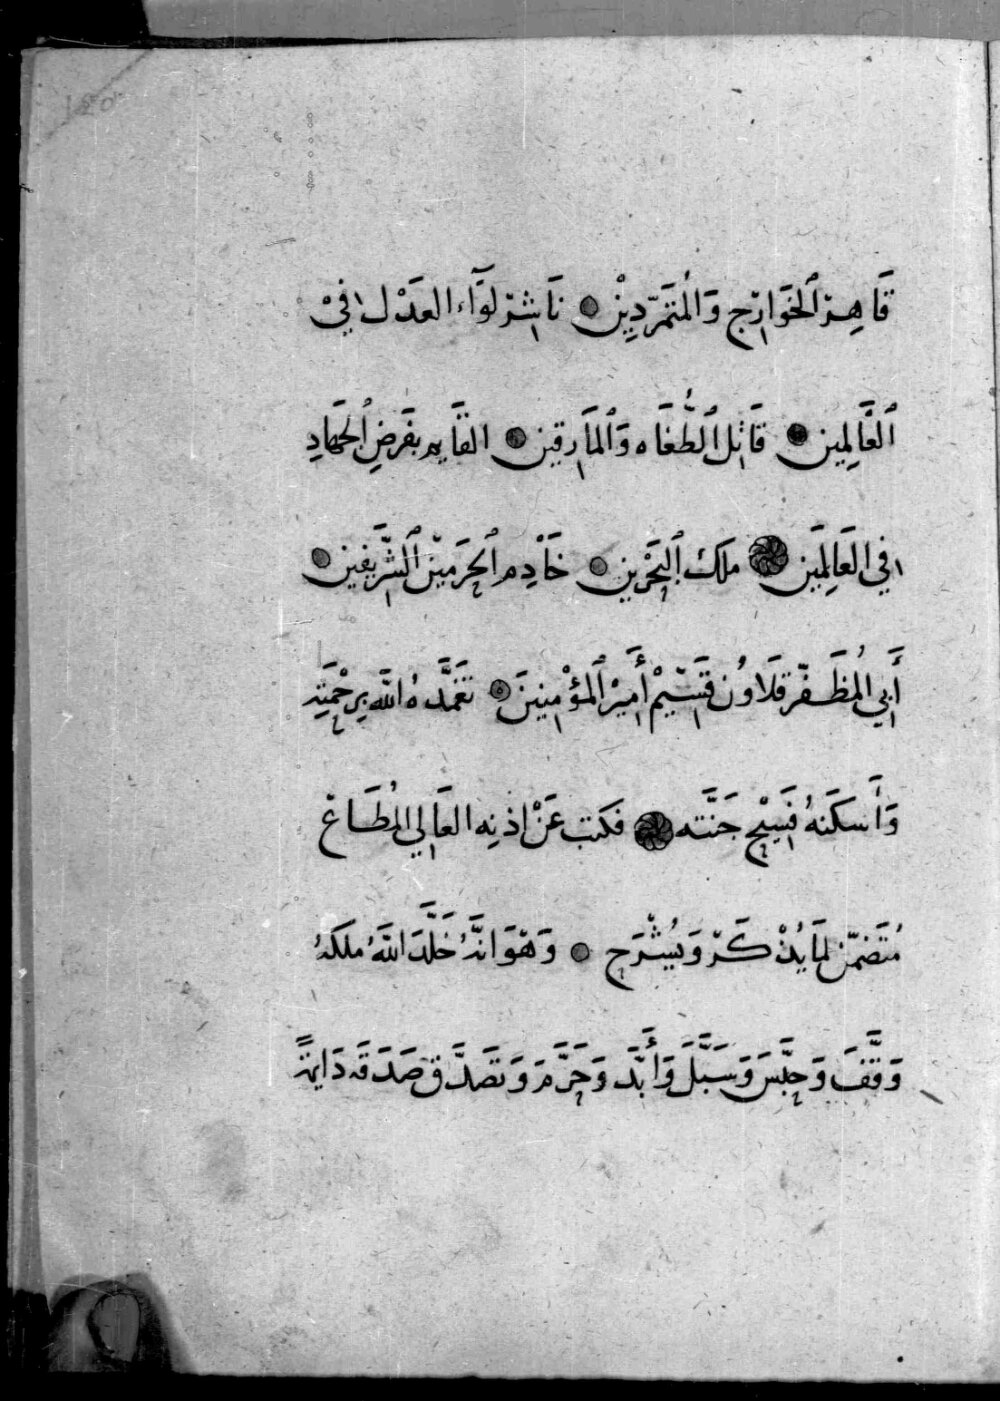 قَاهِرِ ٱلْخَوَارِجِ وَالْمُتَمَرِّدِيْنَ ۞ نَاشِرِ لِوَآءِ الْعَدْلِ فِيْ
ٱلْعَالَمِينَ ۞ قَاتِلِ ٱلطُّغَاه وَٱلْمَارِقِينَ ۞ القَايم بِفَرَضِ الْجَهَادِ
فِي الْعَالَمِينَ ۞ مَلِكِ ٱلْبَحْرَيْنِ ۞ خَادِمِ ٱلْحَرَمَيْنِ ٱلشَّرِيفَيْنِ ۞
أَبِي الْمُظَفَّرِ قَلَاوُن قَسِيْمِ أَمِيْرِ ٱلْمُؤْمِنِينَ ۞ تَغَمَّدَهُ اللَّهُ بِرَحْمَتِهِ
وَأَسْكَنَهُ فَسِيْحَ جَنَّتِه ۞ فَكتب عَنْ اذنِه العَالِي المُطَاعْ
مُتَضَمِّنٌ لِمَا يُذْكَرْ وَيُشْرَح ۞ وَهْوَ انَّهُ خَلَّدَ اللَّهُ مُلكَهُ
وَقَّفَ وَحَبَّسَ وَسَبَّلَ وَأَبَّدَ وَحَرَّمَ وَتَصَدَّقَ صَدَقَةً دَايمَةً